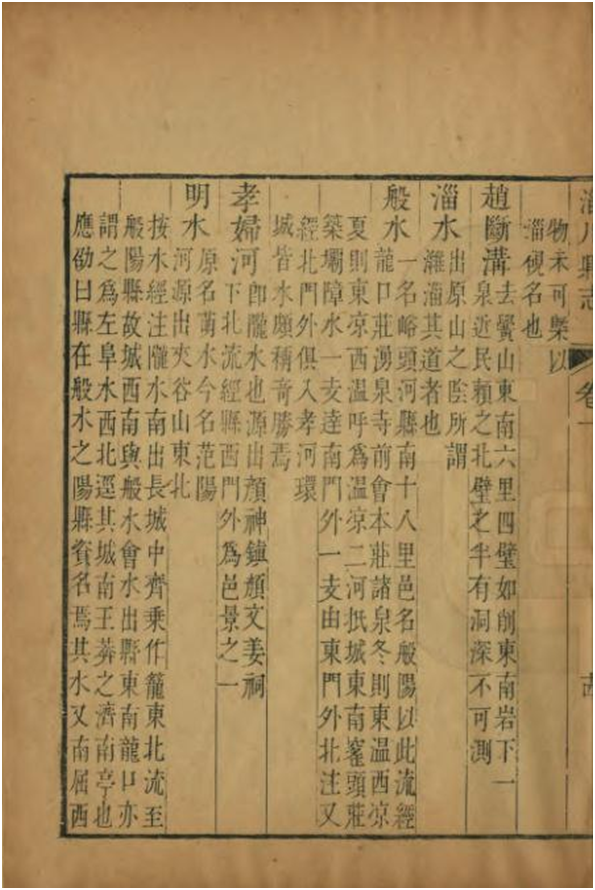 淄川縣志
卷一
物未可槩以
淄硯名也
趙斷溝
去黌山東南六里四壁如削東南岩下一
泉近民賴之北壁之半有洞深不可測
淄水
出原山之陰所謂
濰淄其道者也
般水
一名峪頭河縣南十八里邑名般陽以此流經
龍口莊湧泉寺前會本莊諸泉冬則東溫西凉
夏則東凉西溫呼爲溫凉二河抵城東南窰頭莊
築壩障水一支達南門外一支由東門外北注又
經北門外俱入孝河環
城皆水頗稱奇勝焉
孝婦河
卽隴水也源出顏神鎮顏文姜祠
下北流經縣西門外爲邑景之一
明水
原名萌水今名范陽
河源出夾谷山東北
按水經注隴水南出長城中齊乗作籠東北流至
般陽縣故城西南與般水會水出縣東南龍口亦
謂之爲左阜水西北逕其城南王莽之濟南亭也
應劭曰縣在般水之陽縣資名焉其水又南屈西